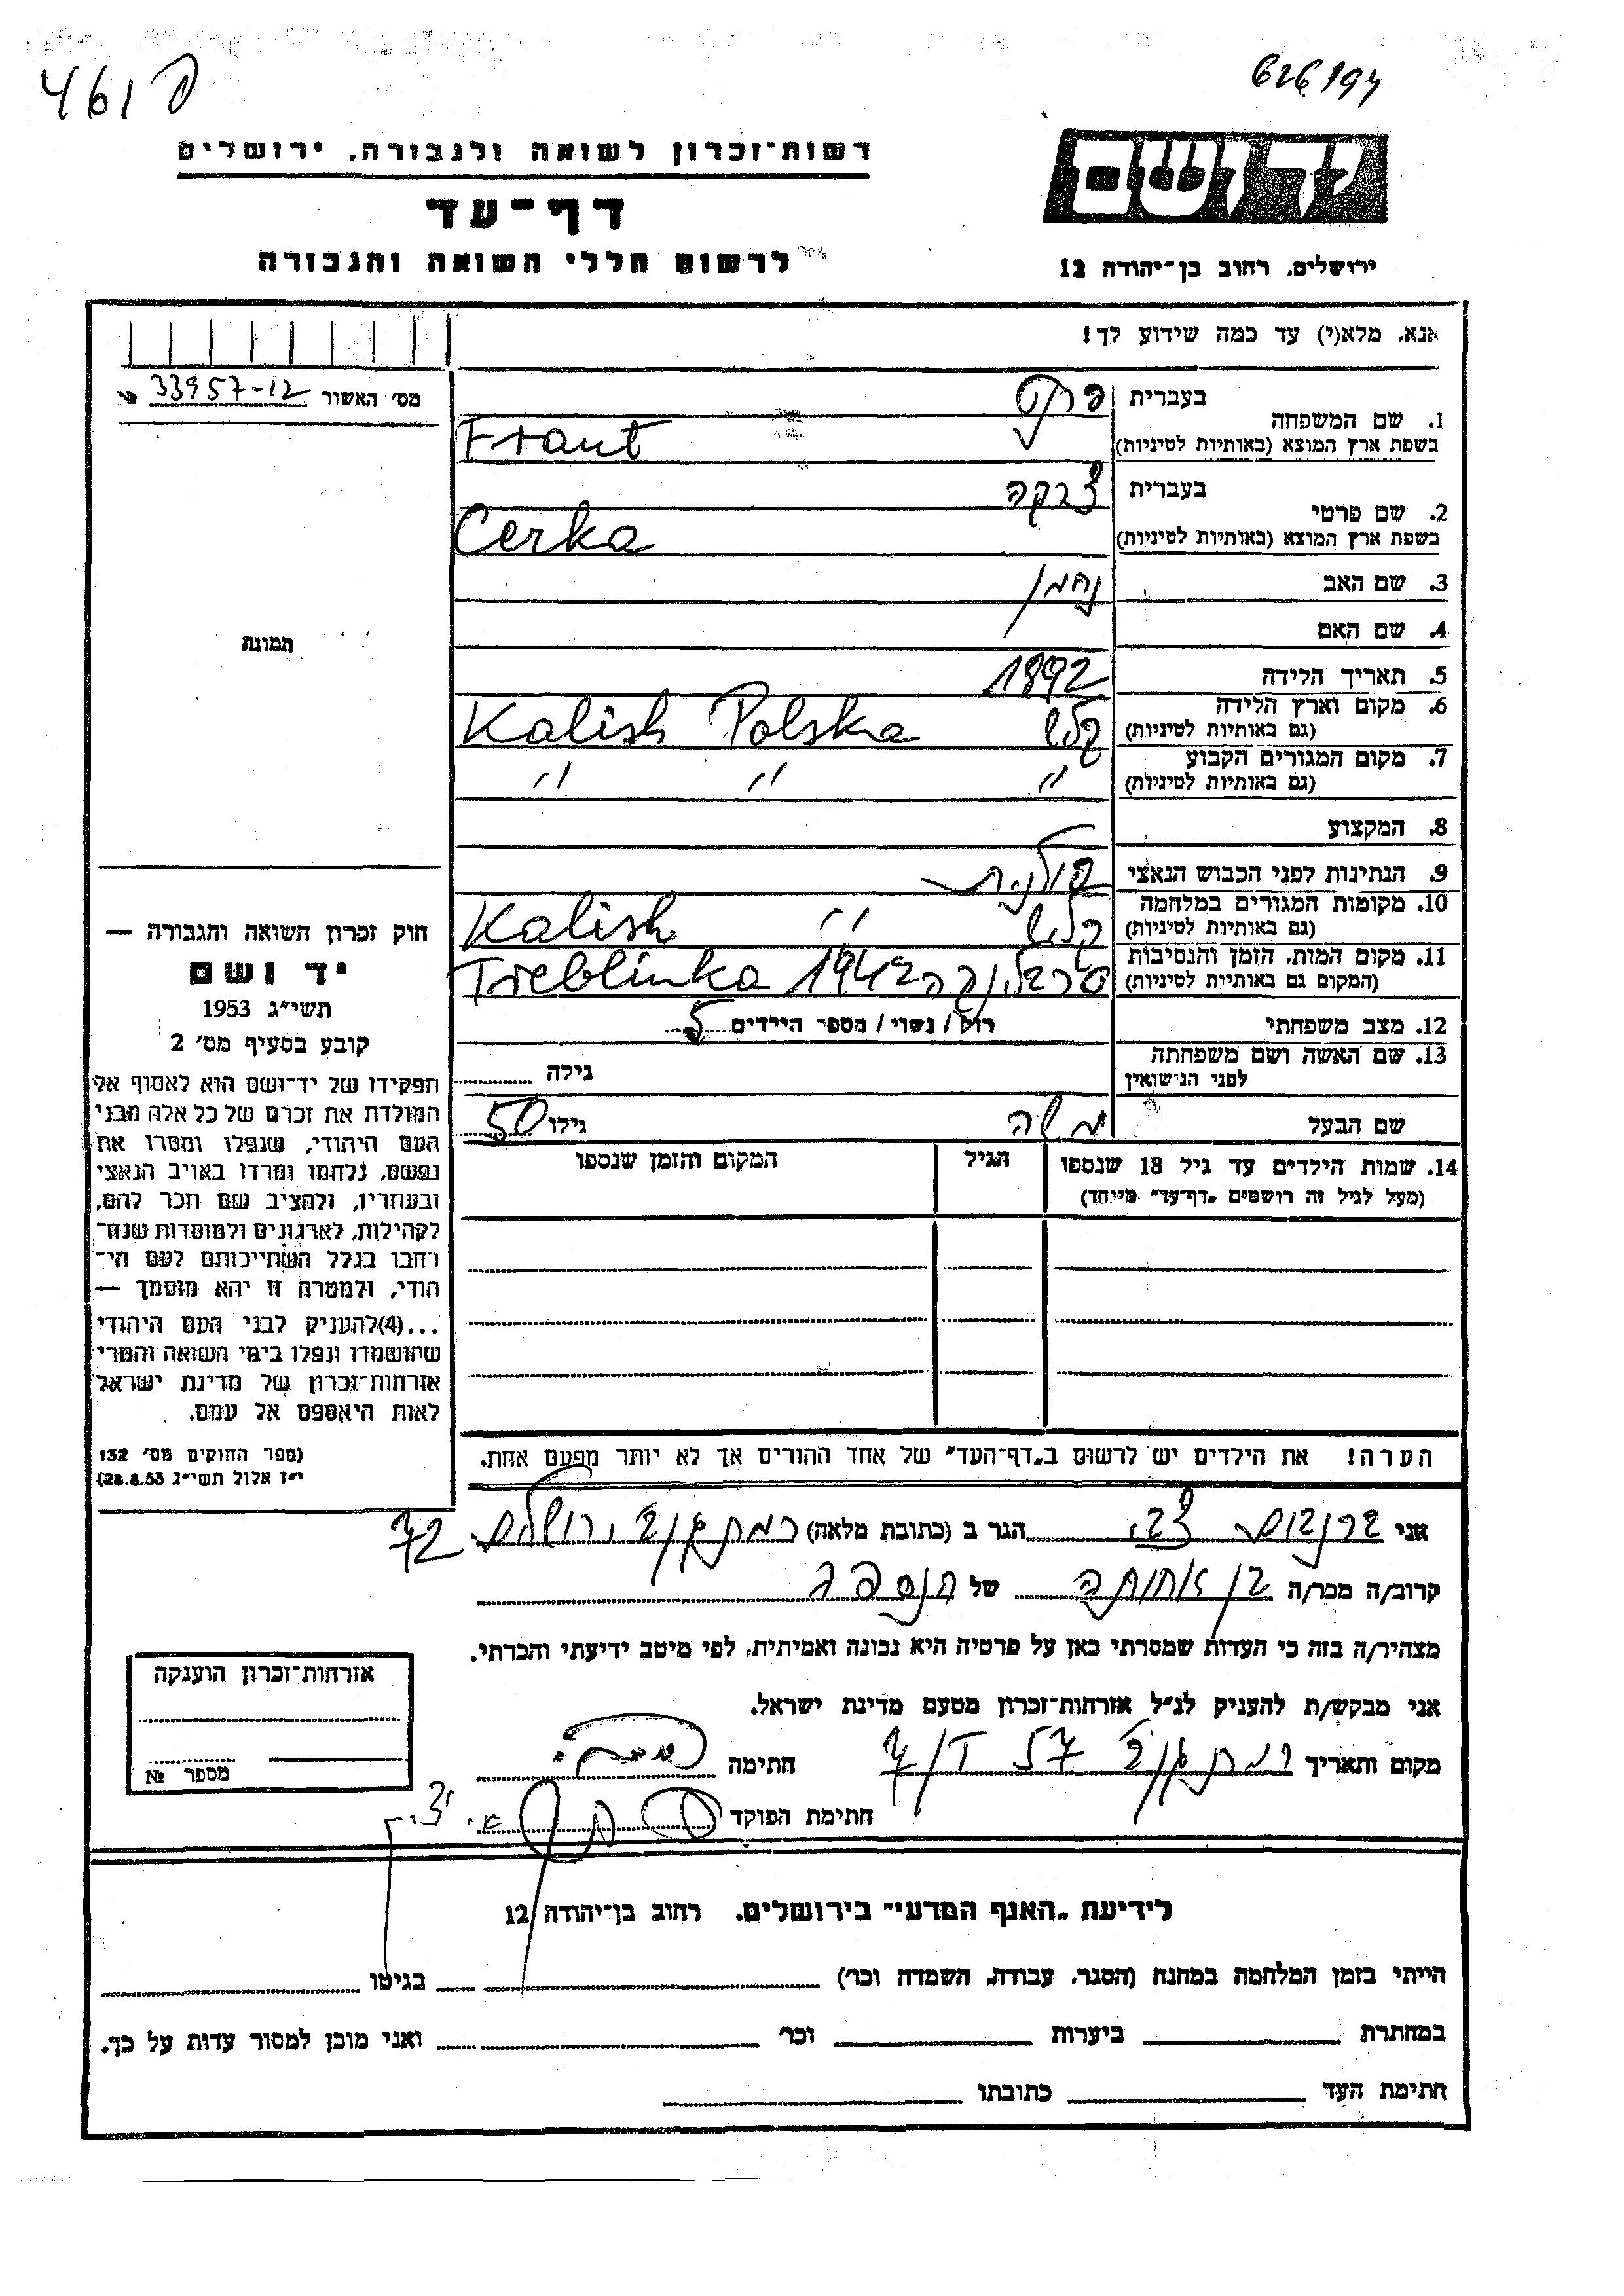 461 פ
626194
רשות־זכרון לשואה ולגבורה, ירושלים
דף־עד
לרשום חללי השואה והגבורה
יד ושם
ירושלים, רחוב בן־יהודה 12
אנא, מלא(י) עד כמה שידוע לך!
מס׳ האשור 33957-12
תמונה
1. שם המשפחה בעברית פרנט
בשפת ארץ המוצא (באותיות לטיניות) Frant
2. שם פרטי בעברית צרקה
בשפת ארץ המוצא (באותיות לטיניות) Cerka
3. שם האב נחמן
4. שם האם
5. תאריך הלידה 1892
6. מקום וארץ הלידה (גם באותיות לטיניות) קליש Kalish Polska
7. מקום המגורים הקבוע (גם באותיות לטיניות) " " "
8. המקצוע
9. הנתינות לפני הכבוש הנאצי פולנית
10. מקומות המגורים במלחמה (גם באותיות לטיניות) קליש " Kalish
11. מקום המות, הזמן והנסיבות (המקום גם באותיות לטיניות) טרבלינקה 1942 Treblinka
12. מצב משפחתי רוק/נשוי/מספר הילדים 5
13. שם האשה ושם משפחתה לפני הנישואין גילה
שם הבעל משה גילו 50
14. שמות הילדים עד גיל 18 שנספו
(מעל לגיל זה רושמים „דף־עד” מיוחד)
הגיל
המקום והזמן שנספו
הערה! את הילדים יש לרשום ב„דף־העד” של אחד ההורים אך לא יותר מפעם אחת.
חוק זכרון השואה והגבורה —
יד ושם
תשי״ג 1953
קובע בסעיף מס׳ 2
תפקידו של יד־ושם הוא לאסוף אל
המולדת את זכרם של כל אלה מבני
העם היהודי, שנפלו ומסרו את
נפשם, נלחמו ומרדו באויב הנאצי
ובעוזריו, ולהציב שם וזכר להם,
לקהילות, לארגונים ולמוסדות שנח־
רחבו בגלל השתייכותם לעם הי־
הודי, ולמטרה זו יהא מוסמך —
...(4)להעניק לבני העם היהודי
שהושמדו ונפלו בימי השואה והמרי
אזרחות־זכרון של מדינת ישראל
לאות היאספם אל עמם.
(ספר החוקים מס׳ 132
י״ז אלול תשי״ג 28.8.53)
אני צבי הגר ב (כתובת מלאה) רמת גן ירושלים 72
קרוב/ה מכר/ה בן אחותה של הנספה
מצהיר/ה בזה כי העדות שמסרתי כאן על פרטיה היא נכונה ואמיתית, לפי מיטב ידיעתי והכרתי.
אני מבקש/ת להעניק לנ״ל אזרחות־זכרון מטעם מדינת ישראל.
מקום ותאריך רמת גן 57 חתימה
חתימת הפוקד
אזרחות־זכרון הוענקה
מספר №
לידיעת „האגף המדעי” בירושלים, רחוב בן־יהודה 12
הייתי בזמן המלחמה במחנה (הסגר, עבודה, השמדה וכו׳) בגיטו
במחתרת ביערות וכו׳ ואני מוכן למסור עדות על כך.
חתימת העד כתובתו